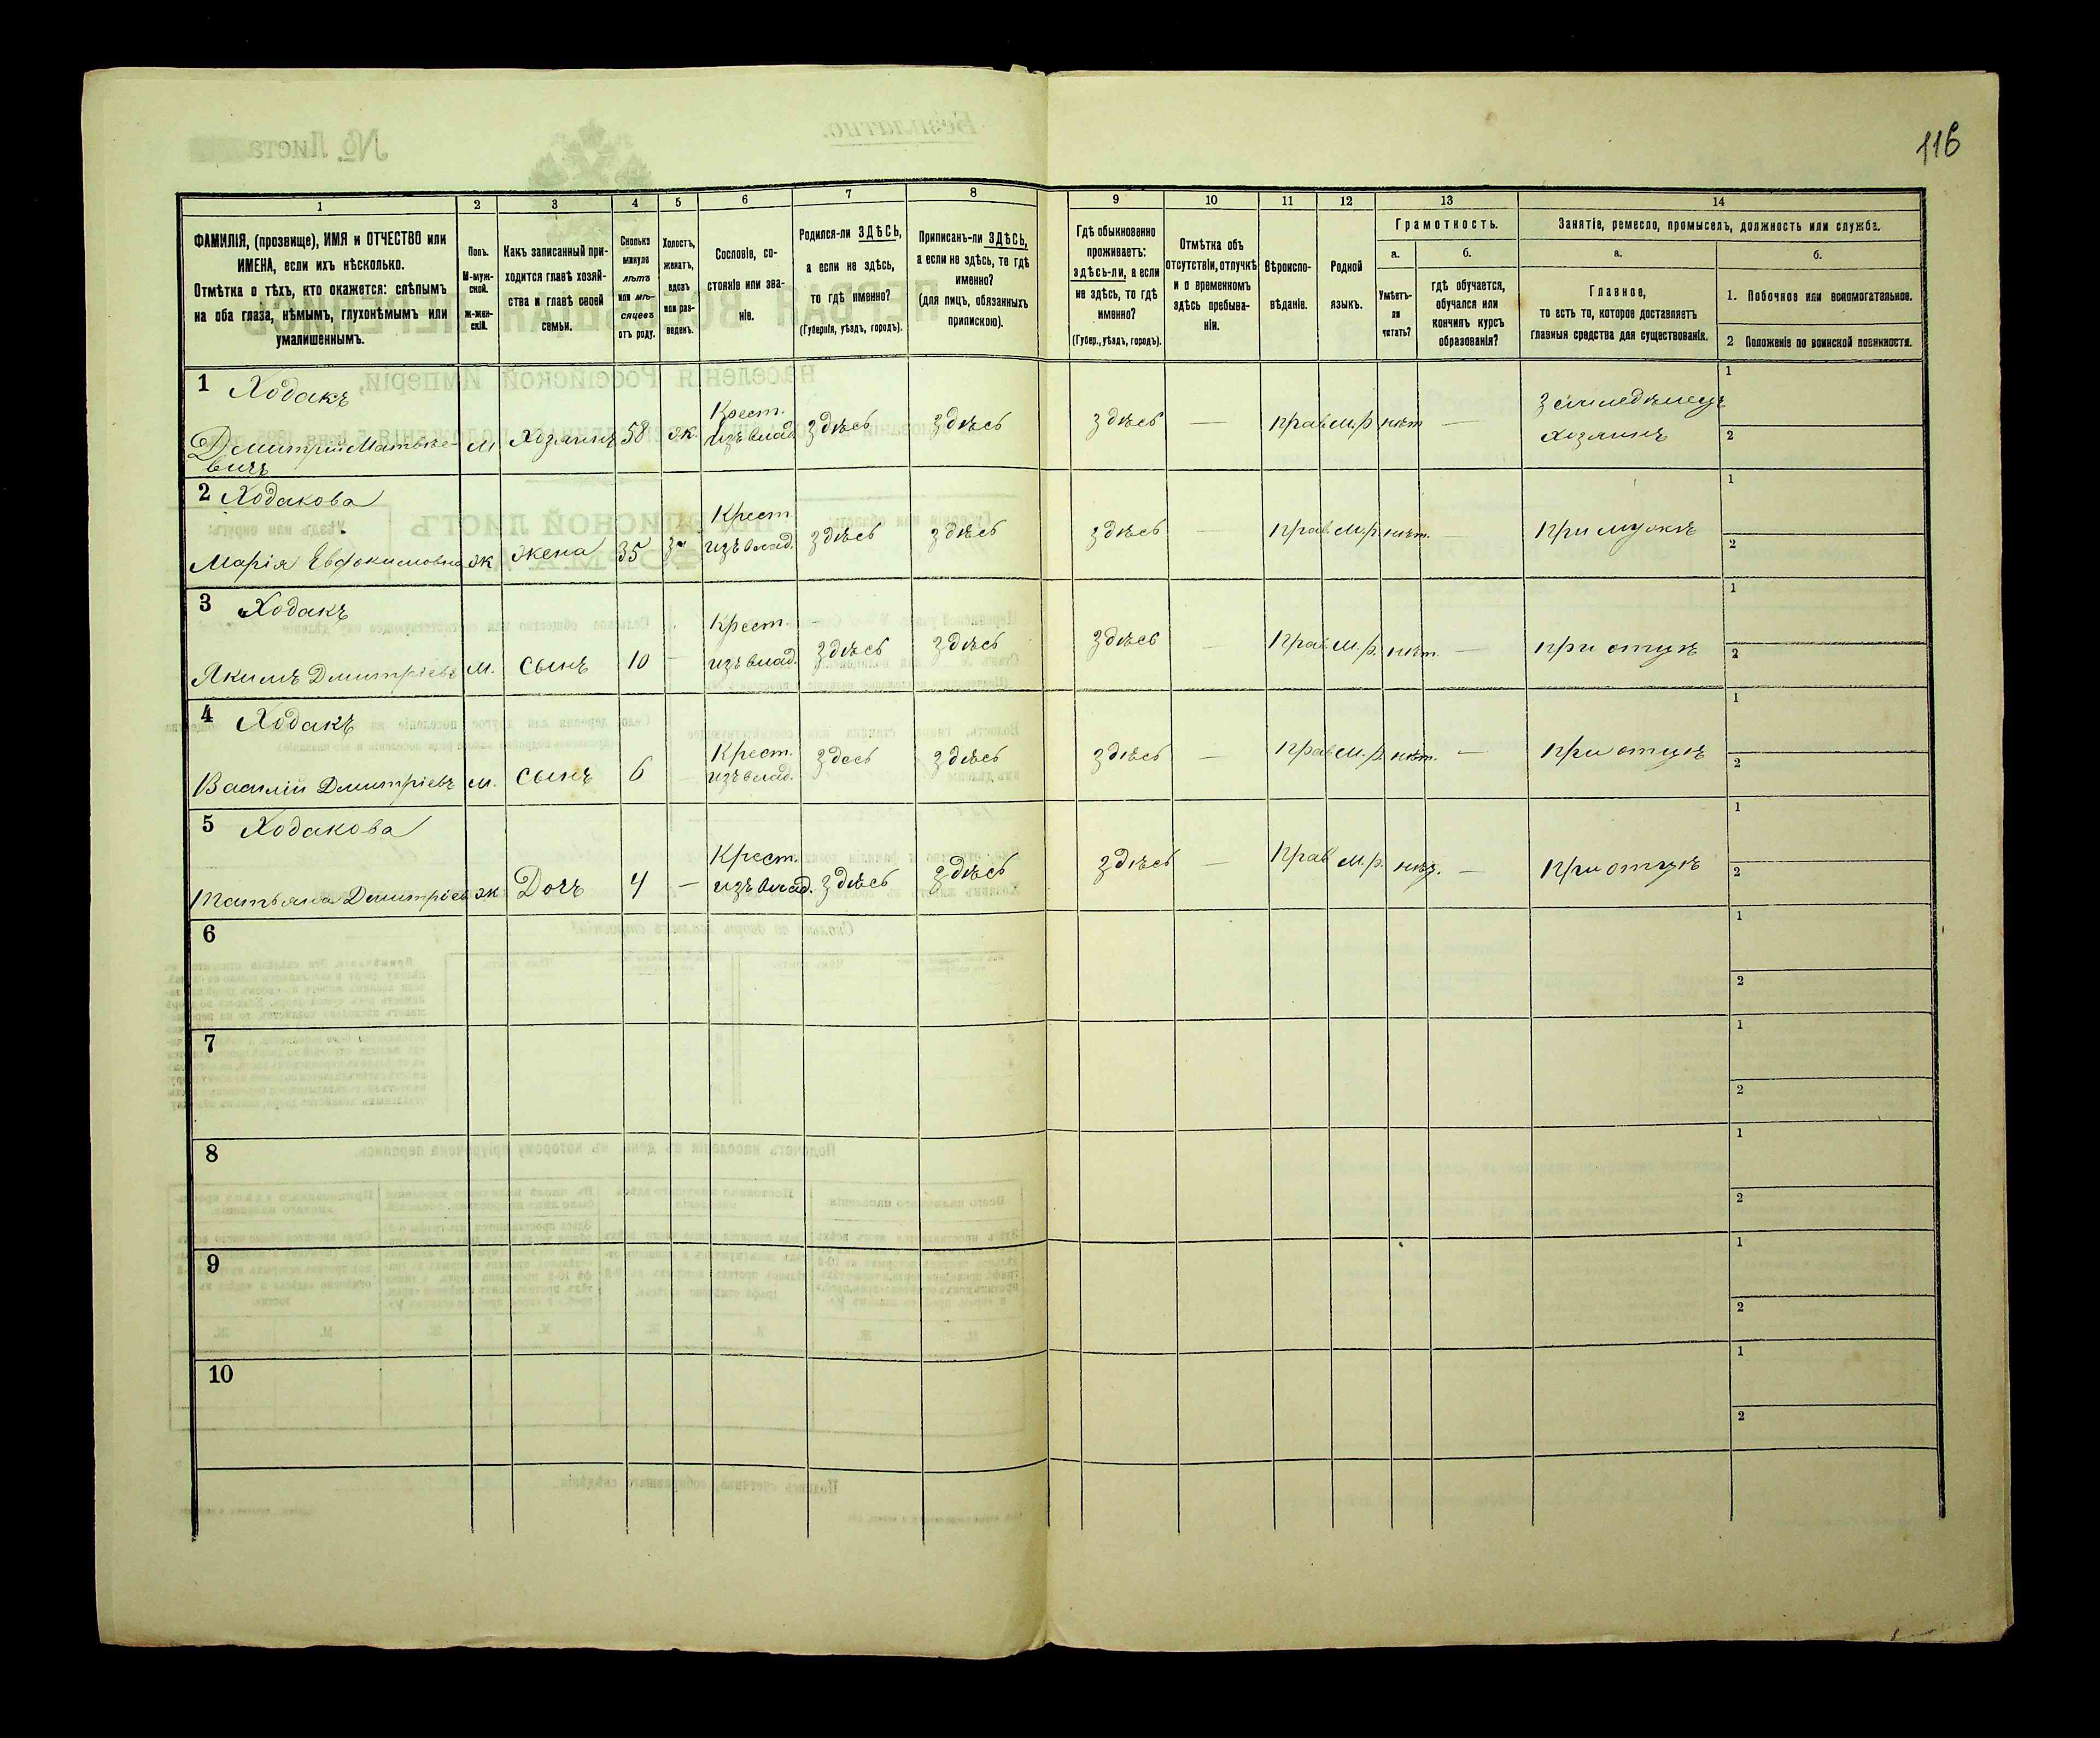 116
1 2 3 4 5 6 7 8 9 10 11 12 13 14
ФАМИЛІЯ, (прозвище), ИМЯ и ОТЧЕСТВО или
ИМЕНА, если ихъ нѣсколько.
Отмѣтка о тѣхъ, кто окажется: слѣпымъ
на оба глаза, нѣмымъ, глухонѣмымъ или
умалишеннымъ.
Полъ.
М-муж-
ской.
Ж-жен-
скій.
Какъ записанный при-
ходится главѣ хозяй-
ства и главѣ своей
семьи.
Сколько
минуло
лѣтъ
или мѣ-
сяцевъ
отъ роду.
Холостъ,
женатъ,
вдовъ
или раз-
веденъ.
Сословіе, со-
стояніе или зва-
ніе.
Родился-ли ЗДѢСЬ,
а если не здѣсь,
то гдѣ именно?
(Губернія, уѣздъ, городъ).
Приписанъ-ли ЗДѢСЬ,
а если не здѣсь, то гдѣ
именно?
(для лицъ, обязанныхъ
припискою).
Гдѣ обыкновенно
проживаетъ:
здѣсь-ли, а если
не здѣсь, то гдѣ
именно?
(Губер., уѣздъ, городъ).
Отмѣтка объ
отсутствіи, отлучкѣ
и о временномъ
здѣсь пребыва-
ніи.
Вѣроиспо-
вѣданіе.
Родной
языкъ.
Грамотность.
а.
Умѣетъ-
ли
читать?
б.
гдѣ обучается,
обучался или
кончилъ курсъ
образованія?
Занятіе, ремесло, промыселъ, должность или служба.
а.
Главное,
то есть то, которое доставляетъ
главныя средства для существованія.
б.
1. Побочное или вспомогательное.
2 Положеніе по воинской повинности.
1 Ходакъ
Дмитрій Матвѣе-
вичъ
м Хозяинъ 58 ж. Крест.
изъ влад. здѣсь здѣсь здѣсь — прав м.р нѣт — земледѣлецъ
хозяинъ
1
2
2 Ходакова
Марія Евфокимовна ж жена 35 з Крест
изъ влад. здѣсь здѣсь здѣсь — прав м.р. нѣт. — при мужѣ
1
2
3 Ходакъ
Якимъ Дмитріевъ м. сынъ 10 — Крест.
изъ влад. здѣсь здѣсь здѣсь — Прав м.р. нѣт. — при отцѣ
1
2
4 Ходакъ
Василій Дмитріевъ м. сынъ 6 — Крест.
изъ влад. здесь здѣсь здѣсь — прав м.р. нѣт. — при отцѣ
1
2
5 Ходакова
Татьяна Дмитріев ж Дочъ 4 — Крест.
изъ влад. здѣсь здѣсь здѣсь — Прав м.р. — При отцѣ
1
2
6
1
2
7
1
2
8
1
2
9
1
2
10
1
2